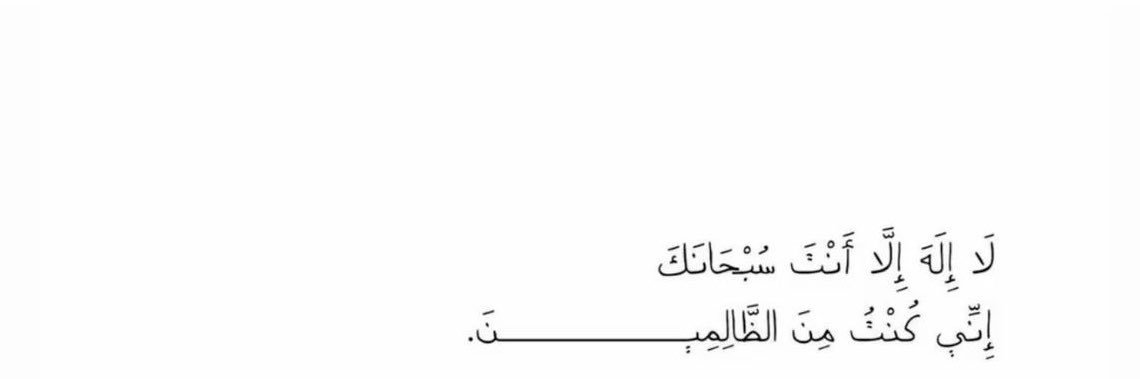 لَا إِلَهَ إِلَّا أَنْتَ سُبْحَانَكَ
إِنِّي كُنْتُ مِنَ الظَّالِمِيـــــــــــــــنَ.